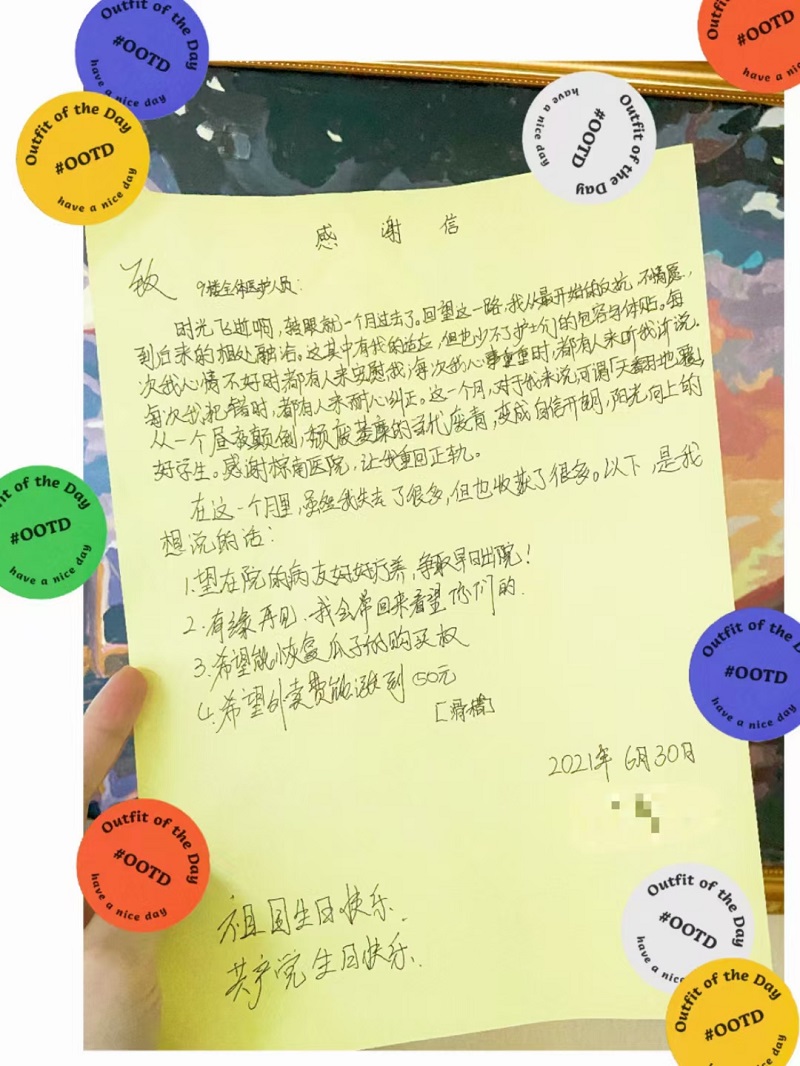 Outfit of the Day
#OOTD
have a nice day
Outfit of the Day
#OOTD
have a nice day
#OOTD
have a nice day
Outfit of the Day
#OOTD
have a nice day
感谢信
致 9楼全体医护人员:
时光飞逝啊,转眼就一个月过去了。回望这一路,我从最开始的反抗,不情愿,
到后来的相处融洽。这其中有我的适应,但也少不了护士们的包容与体贴。每
次我心情不好时都有人来安慰我,每次我心事重重时,都有人来听我诉说。
每次我犯错时,都有人来耐心纠正。这一个月,对于我来说,可谓「天翻地覆」,
从一个昼夜颠倒,颓废萎靡的当代废青,变成自信开朗,阳光向上的
好学生。感谢棕南医院,让我重回正轨。
在这一个月里,虽然我失去了很多,但也收获了很多。以下,是我
想说的话:
1.望在院的病友好好疗养,争取早日出院!
2.有缘再见.我会常回来看望你们的.
3.希望能恢复瓜子的购买权
4.希望外卖费能涨到50元
[滑稽]
2021年6月30日
祖国生日快乐.
共产党生日快乐.
Outfit of the Day
#OOTD
have a nice day
Outfit of the Day
#OOTD
have a nice day
Outfit of the Day
#OOTD
have a nice day
Outfit of the Day
#OOTD
have a nice
Outfit of the Day
#OOTD
have a nice day